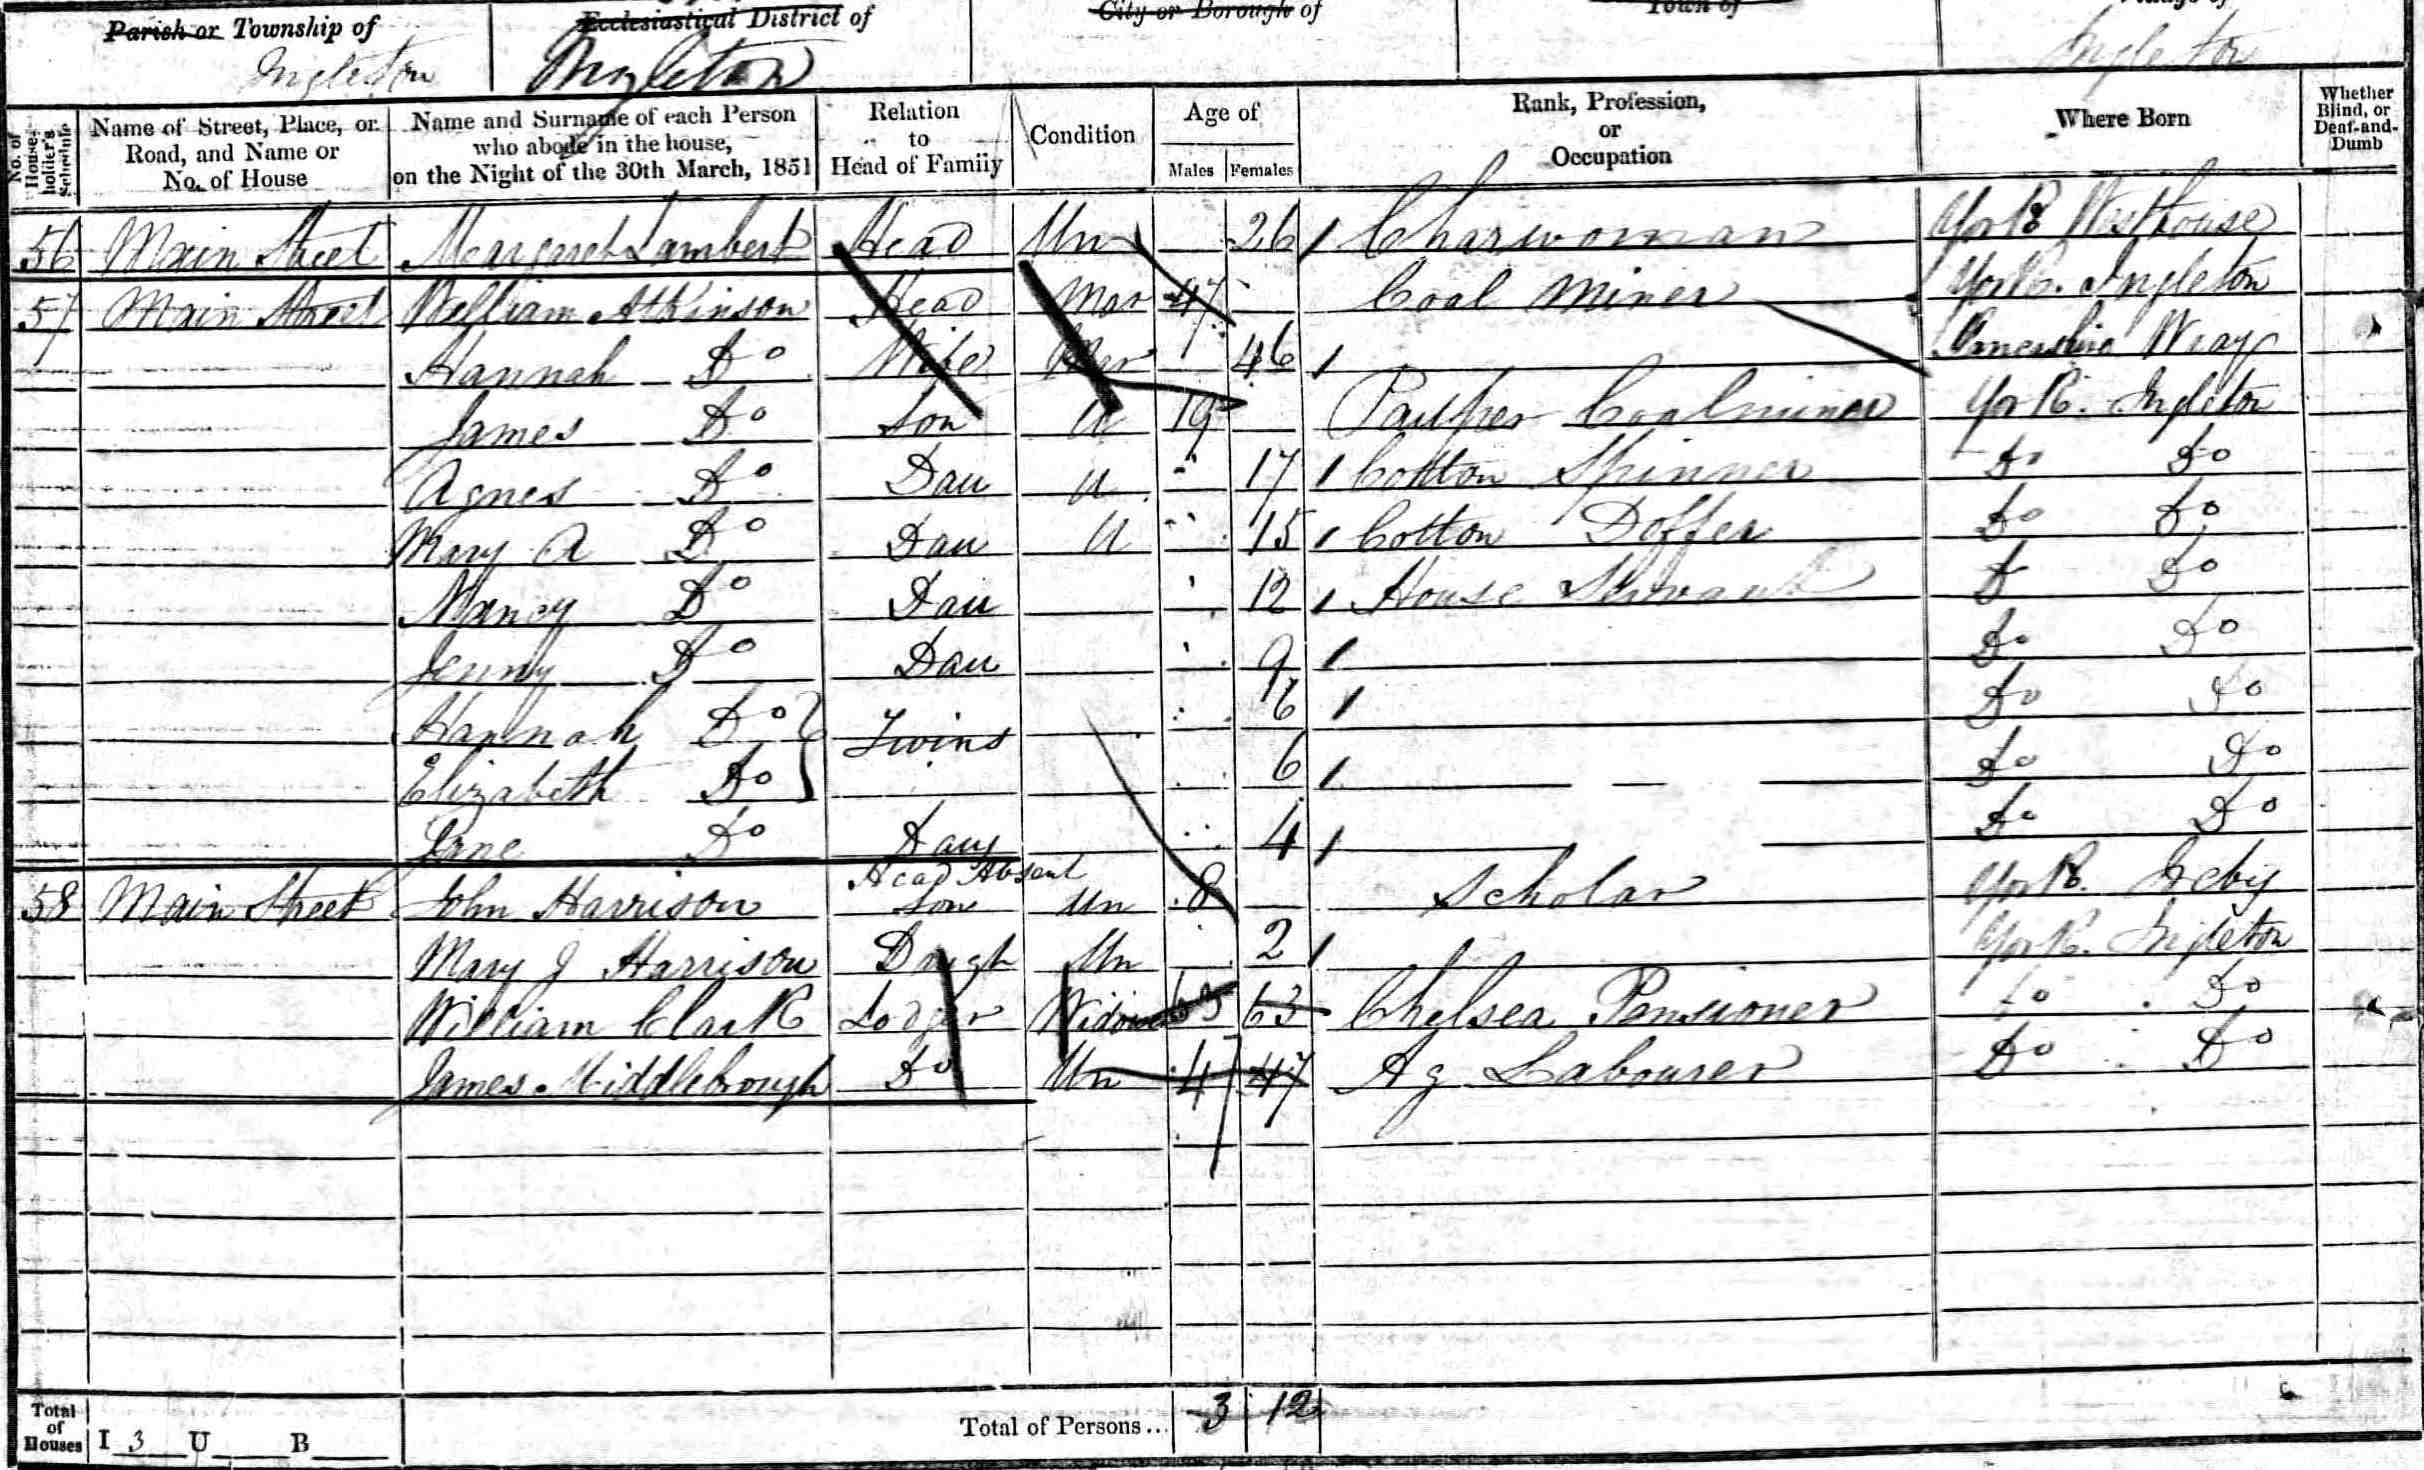 Parish or Township of Ecclesiastical District of City or Borough of Town of
Ingleton Ingleton Ingleton
No. of House-holder's Schedule
Name of Street, Place, or Road, and Name or No. of House
Name and Surname of each Person who abode in the house, on the Night of the 30th March, 1851
Relation to Head of Family
Condition
Age of
Males Females
Rank, Profession, or Occupation
Where Born
Whether Blind, or Deaf-and-Dumb
56 Main Street Margaret Lambert Head Un 26 Charwoman York Westhouse
57 Main Street William Atkinson Head Mar 47 Coal Miner York. Ingleton
Hannah Do Wife Mar 46 Lancashire Wray
James Do Son U 19 Pauper Coalminer York. Ingleton
Agnes Do Dau U 17 Cotton Spinner Do Do
Mary A Do Dau U 15 Cotton Doffer Do Do
Nancy Do Dau 12 House Servant Do Do
Jenny Do Dau 9 Do Do
Hannah Do Twins 6 Do Do
Elizabeth Do 6 Do Do
Jane Do Dau 4 Do Do
Head Absent
58 Main Street John Harrison Son Un 8 Scholar York. Ireby
Mary J Harrison Daugh Un 2 York. Ingleton
William Clark Lodger Widower 63 63 Chelsea Pensioner Do Do
James Middlebrough Do Un 47 47 Ag Labourer Do Do
Total of Houses I 3 U B Total of Persons... 3 12